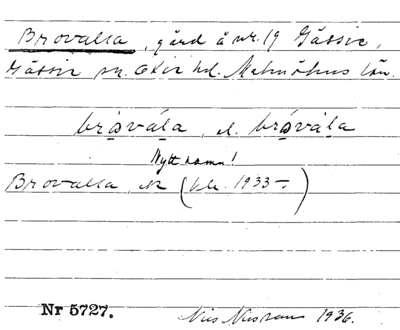 Brovalla, gård å nr. 19 Gässie,
Gässie sn. Oxie hd. Malmöhus län.
brovála, el. brovála
Nytt namn!
Brovalla, (1933 –)
Nr 5727. Nils Nilsson 1936.